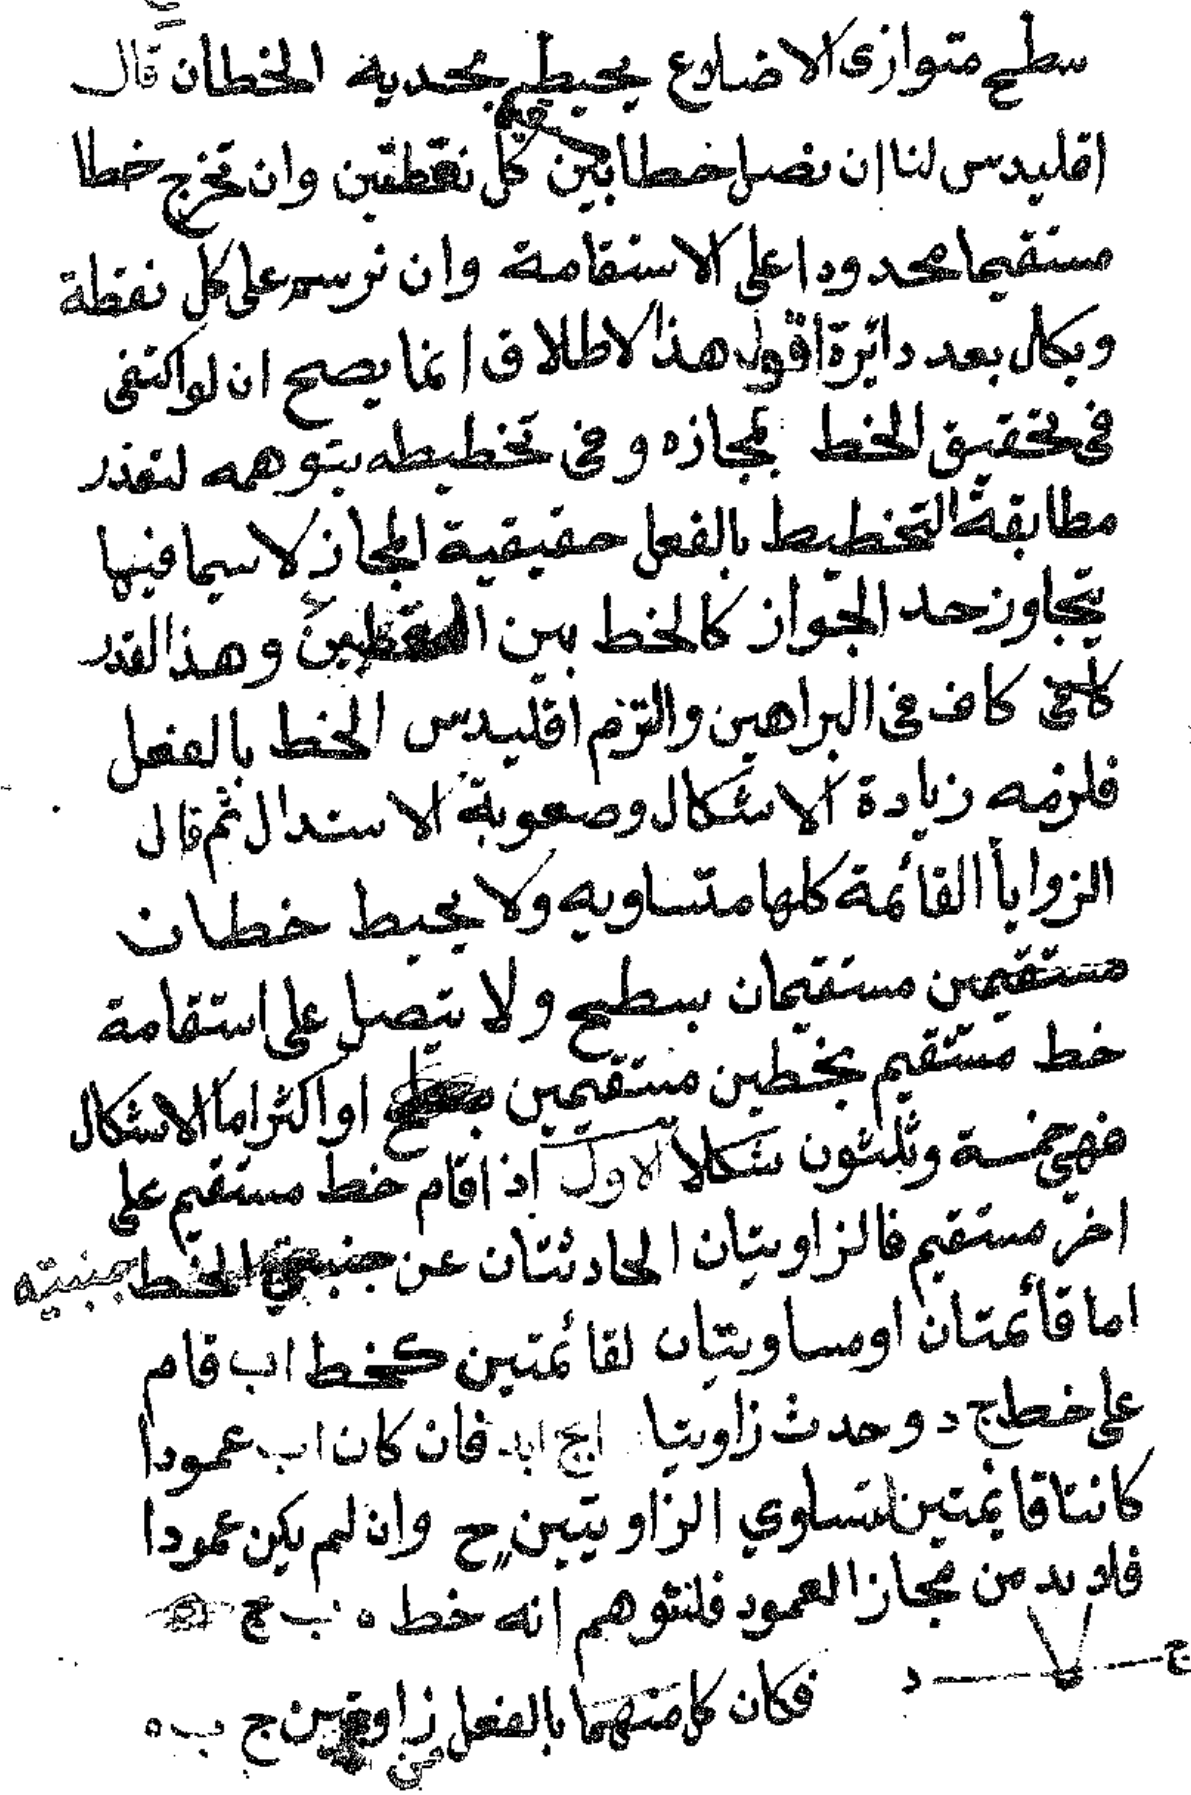 سطح متوازى الاضلاع يحيط بحدية الخطان قال
اقليدس لنا ان نصل خطا بين كل نقطتين وان نخرج خطا
مستقيما محدودا على الاستقامة وان نرسم على كل نقطة
وبكل بعد دائرة اقول هذا الاطلاق انما يصح ان لو اكتفى
فى تحقيق الخط بمجازه وفى تخطيطه بتوهمه لتعذر
مطابقة التخطيط بالفعل حقيقية المجاز لاسيما فيها
يتجاوز حد الجواز كالخط بين وهذا القدر
كاف فى البراهين والتزم اقليدس الخط بالفعل
فلزمه زيادة الاشكال وصعوبة الاستدال ثم قال
الزوايا القائمة كلها متساويه ولا يحيط خطان
مستقيمين مستقيمان بسطح ولا يتصل على استقامة
خط مستقيم بخطين مستقيمين او اكثر اما الاشكال
فهي خمسة وثلثون شكلا الاول اذا قام خط مستقيم على
اخر مستقيم فالزاويتان الحادثتان عن جنبتي الخط جنبتيه
اما قائمتان او مساويتان لقائمتين كخط اب قام
على خط ج د وحدث زاويتا ابج ابد فان كان اب عمودا
كانتا قائمتين لتساوي الزاويتين ح وان لم يكن عمودا
فلا بد من مجاز العمود فلنتوهم انه خط ه ب ج
د ج
فكان كل منهما بالفعل زاويتين من ج ب ه